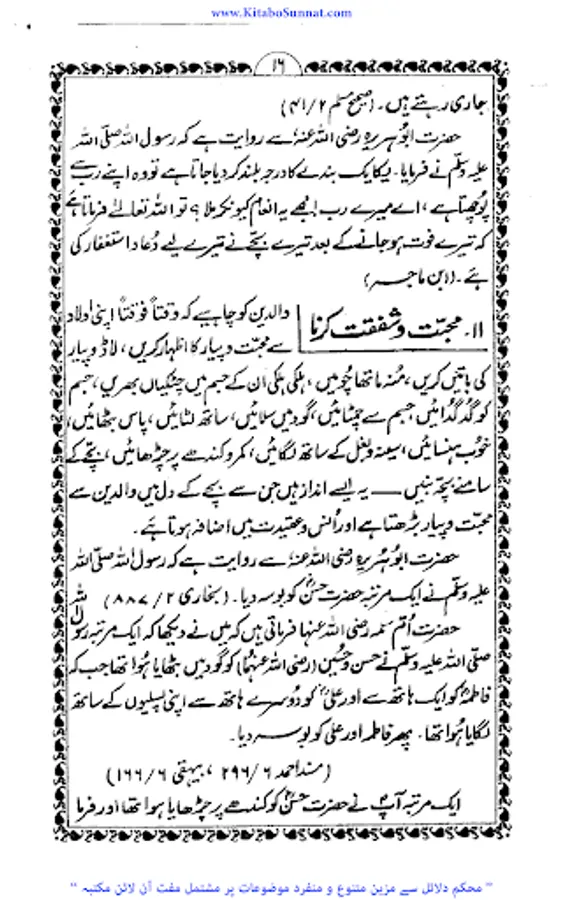 www.KitaboSunnat.com
۱۶
جاری رہتے ہیں۔ (صحیح مسلم ۲/۴۱)
حضرت ابو ہریرہ رضی اللہ عنہ سے روایت ہے کہ رسول اللہ صلی اللہ
علیہ وسلم نے فرمایا۔ یکایک بندے کا درجہ بلند کر دیا جاتا ہے تو وہ اپنے رب سے
پوچھتا ہے، اے میرے رب مجھے یہ انعام کیونکر ملا؟ تو اللہ تعالےٰ فرماتا ہے
کہ تیرے فوت ہو جانے کے بعد تیرے بچے نے تیرے لیے دُعاء استغفار کی
ہے۔ (ابن ماجہ)
۱۱۔ محبت و شفقت کرنا
والدین کو چاہیے کہ وقتاً فوقتاً اپنی اولاد
سے محبت و پیار کا اظہار کریں، لاڈ و پیار
کی باتیں کریں، مُنہ ماتھا چُومیں، ہلکی ہلکی اُن کے جسم میں چٹکیاں بھریں، جسم
کو گدگدائیں، جسم سے چمٹائیں، گود میں سلائیں، ساتھ لٹائیں، پاس بٹھائیں،
خوب ہنسائیں، سینہ و بغل کے ساتھ لگائیں، کمر و کندھے پر چڑھائیں، بچے کے
سامنے بچہ بنیں ــــ یہ ایسے انداز ہیں جن سے بچے کے دل میں والدین سے
محبت و پیار بڑھتا ہے اور اُنس و عقیدت میں اضافہ ہوتا ہے۔
حضرت ابو ہریرہ رضی اللہ عنہ سے روایت ہے کہ رسول اللہ صلی اللہ
علیہ وسلم نے ایک مرتبہ حضرت حسنؓ کو بوسہ دیا۔ (بخاری ۲/۸۸۷)
حضرت اُم سلمہ رضی اللہ عنہا فرماتی ہیں کہ میں نے دیکھا کہ ایک مرتبہ رسول اللہ
صلی اللہ علیہ وسلم نے حسن و حسین (رضی اللہ عنہما) کو گود میں بٹھایا ہوا تھا جب کہ
فاطمہؓ کو ایک ہاتھ سے اور علیؓ کو دُوسرے ہاتھ سے اپنی پسلیوں کے ساتھ
لگایا ہُوا تھا۔ پھر فاطمہ اور علی کو بوسہ دیا۔
(مسند احمد ۶/۲۹۶، بیہقی ۶/۱۶۶)
ایک مرتبہ آپؐ نے حضرت حسنؓ کو کندھے پر چڑھایا ہوا تھا اور فرما
" محکم دلائل سے مزین متنوع و منفرد موضوعات پر مشتمل مفت آن لائن مکتبہ "